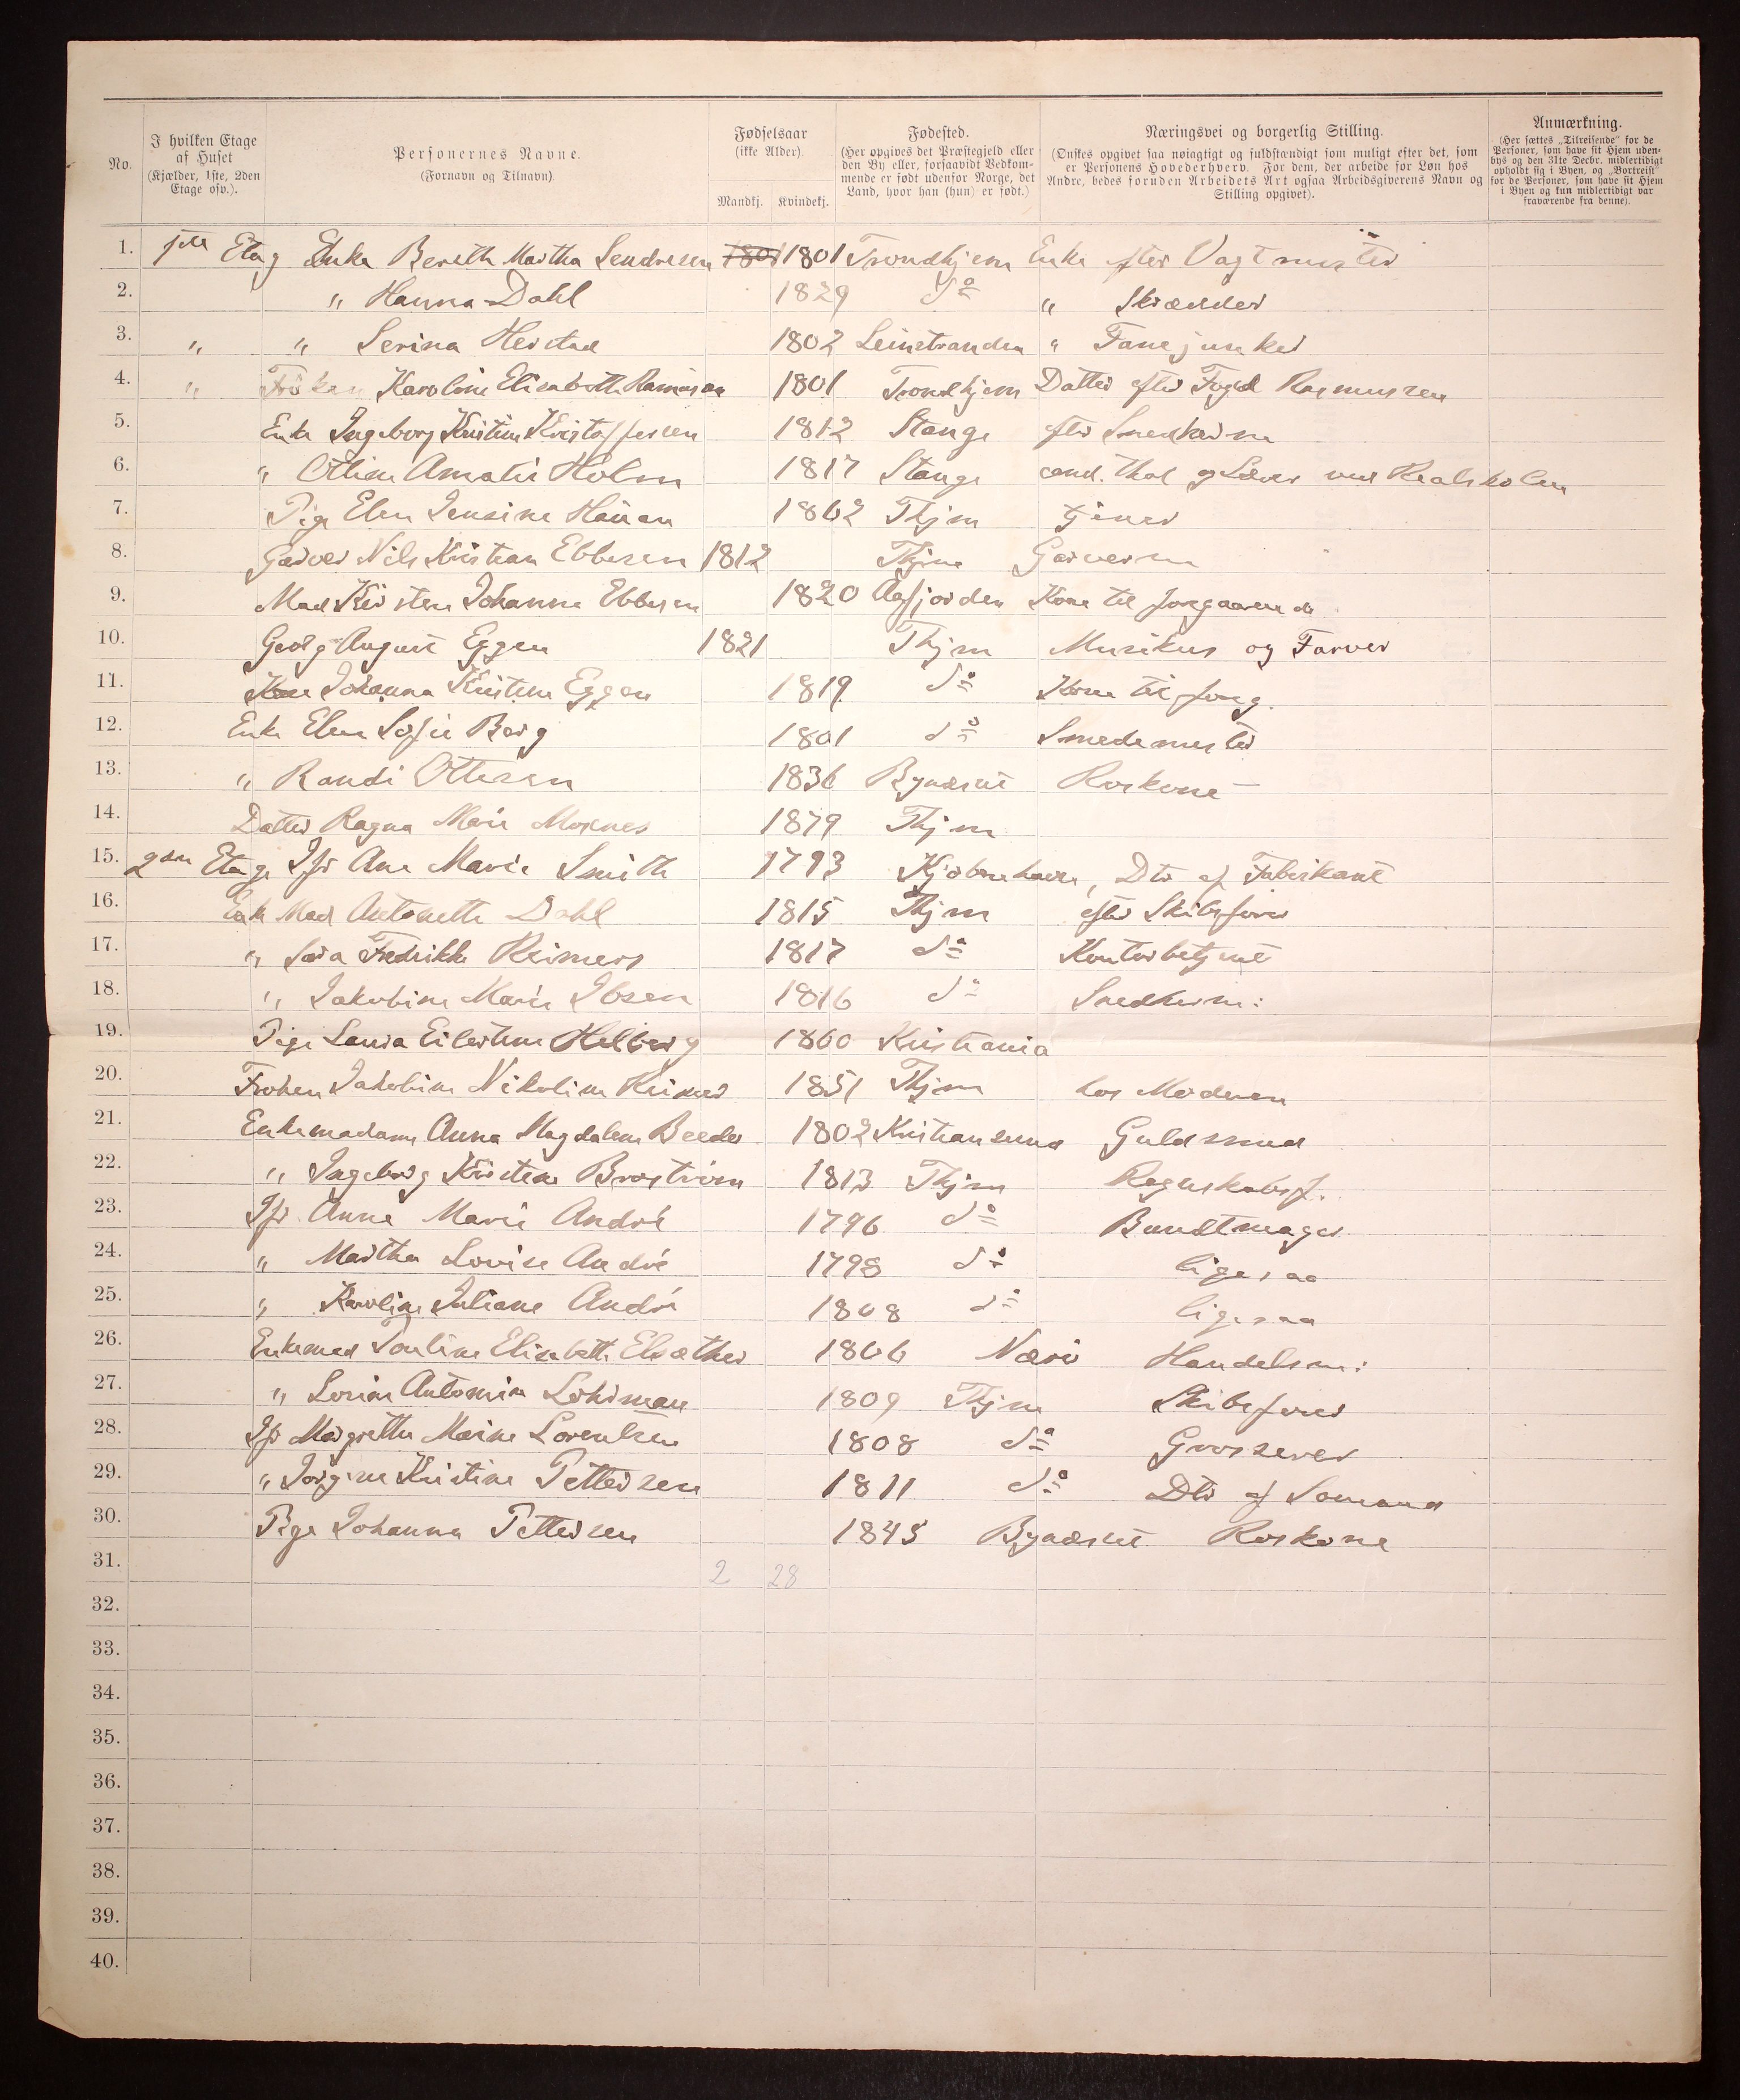 No. I hvilken Etage af Huset (Kjælder, 1ste, 2den Etage osv.). Personernes Navne. (Fornavn og Tilnavn). Fødselsaar (ikke Alder). Mandkj. Kvindekj. Fødested. (Her opgives det Præstegjeld eller den By eller, forsaavidt Vedkommende er født udenfor Norge, det Land, hvor han (hun) er født.) Næringsvei og borgerlig Stilling. (Ønskes opgivet saa nøiagtigt og fuldstændigt som muligt efter det, som er Personens Hovederhverv. For dem, der arbeide for Løn hos Andre, bedes foruden Arbeidets Art ogsaa Arbeidsgiverens Navn og Stilling opgivet). Anmærkning. (Her sættes „Tilreisende" for de Personer, som have sit Hjem udenbys og den 31te Decbr. midlertidigt opholdt sig i Byen, og „Bortreist" for de Personer, som have sit Hjem i Byen og kun midlertidigt var fraværende fra denne).
1. 1ste Etag Enke Bereth Martha Sendresen 1801 1801 Trondhjem Enke efter Vagtmester
2. " Hanna Dahl 1829 do " Skrædder
3. " " Serina Herstad 1802 Leinstranden " Fanejunker
4. " Frøken Karoline Elisabeth Rasmusen 1801 Trondhjem Datter efter Foged Rasmussen
5. Enke Ingeborg Kristine Kristoffersen 1812 Stange efter Snedkerm
6. " Otline Amalie Holm 1817 Stange cand. theol og Lærer ved Realskolen
7. Pige Elen Jensine Hauan 1862 Thjm tjener
8. Garver Nils Kristian Ebbesen 1812 Thjm Garverm
9. Mad Kirsten Johanna Ebbesen 1820 Aafjorden Kone til foregaaende
10. Georg August Eggen 1821 Thjm Musikus og Farver
11. Kone Johanna Kristine Eggen 1819 do Kone til foreg.
12. Enke Elen Sofie Berg 1801 do Smedemester
13. " Randi Ottesen 1836 Bynæset Roskone
14. Datter Ragna Marie Moxnes 1879 Thjm
15. 2den Etage Jfr Ane Marie Smith 1793 Kjøbenhavn, Dtr af Fabrikant
16. Enke Mad Antonette Dahl 1815 Thjm efter Skibsfører
17. " Sara Fredrikke Reimers 1817 do Kontorbetjent
18. " Jakobine Marie Ibsen 1816 do Snedkerm:
19. Pige Laura Eilertine Helberg 1860 Kristiania
20. Frøken Jakobine Nikoline Reimers 1851 Thjm hos Moderen
21. Enkemadame Anna Magdalene Beeder 1802 Kristiansund Guldsmed
22. " Ingeborg Kirstine Broström 1813 Thjm Regnskabsf.
23. Jfr Anne Marie André 1796 do Bundtmager
24. " Martha Lovise André 1798 do ligesaa
25. " Karoline Juliane André 1808 do ligesaa
26. Enkemad Pouline Elisabeth Elsæther 1806 Nærö Handelsm:
27. " Lorine Antonia Lohrman 1809 Thjm Skibsfører
28. Jfr Margrethe Marine Lorentzen 1808 do Grosserer
29. " Jorgine Kristine Pettersen 1811 do Dtr af Sømand
30. Pige Johanna Pettersen 1845 Bynæset Roskone
31. 2 28
32.
33.
34.
35.
36.
37.
38.
39.
40.